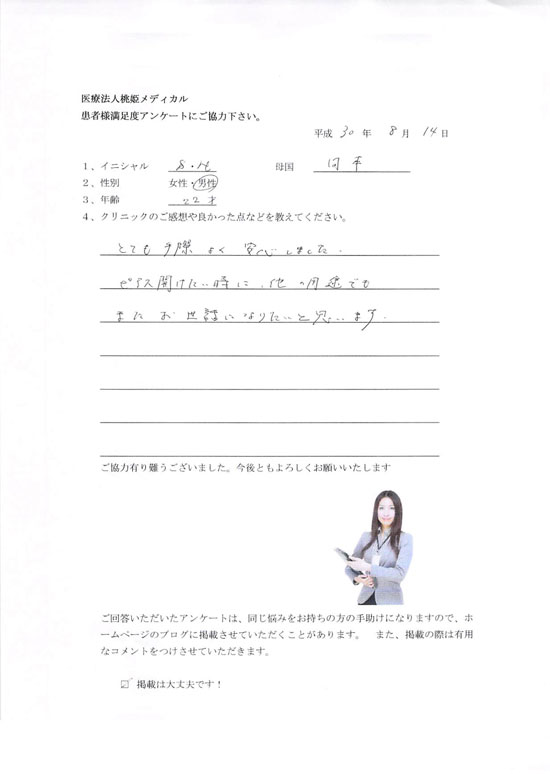 医療法人桃姫メディカル
患者様満足度アンケートにご協力下さい。
平成 30 年 8 月 14 日
1、イニシャル S・H 母国 日本
2、性別 女性・男性
3、年齢 22才
4、クリニックのご感想や良かった点などを教えてください。
とても手際よく安心しました。
ピアス開けたい時に、他の用途でも
またお世話になりたいと思います。
ご協力有り難うございました。今後ともよろしくお願いいたします
ご回答いただいたアンケートは、同じ悩みをお持ちの方の手助けになりますので、ホ
ームページのブログに掲載させていただくことがあります。 また、掲載の際は有用
なコメントをつけさせていただきます。
☑ 掲載は大丈夫です！